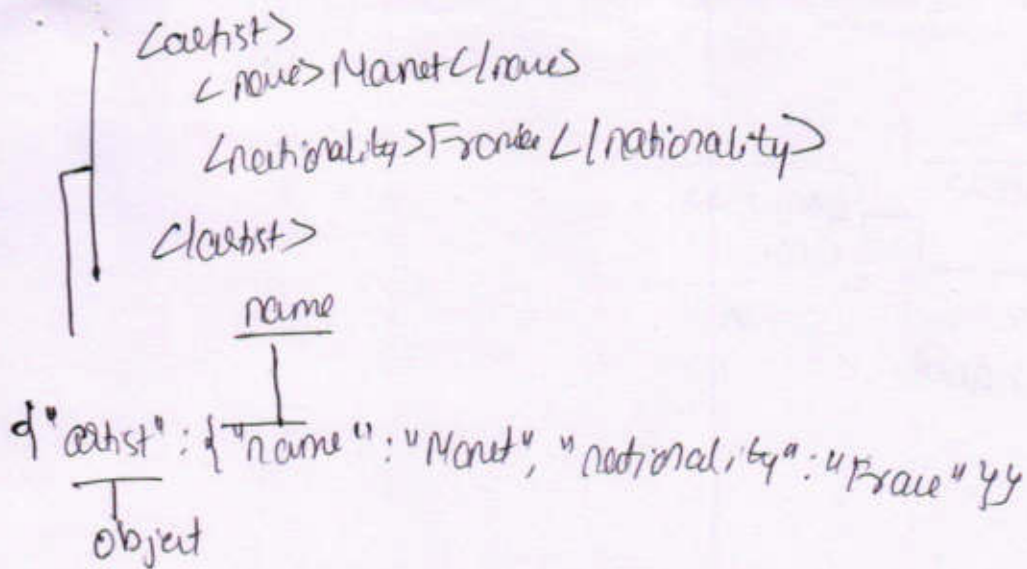 <artist>
<name>Manet</name>
<nationality>France</nationality>
</artist>
name
{"artist": {"name": "Manet", "nationality": "France"}}
object